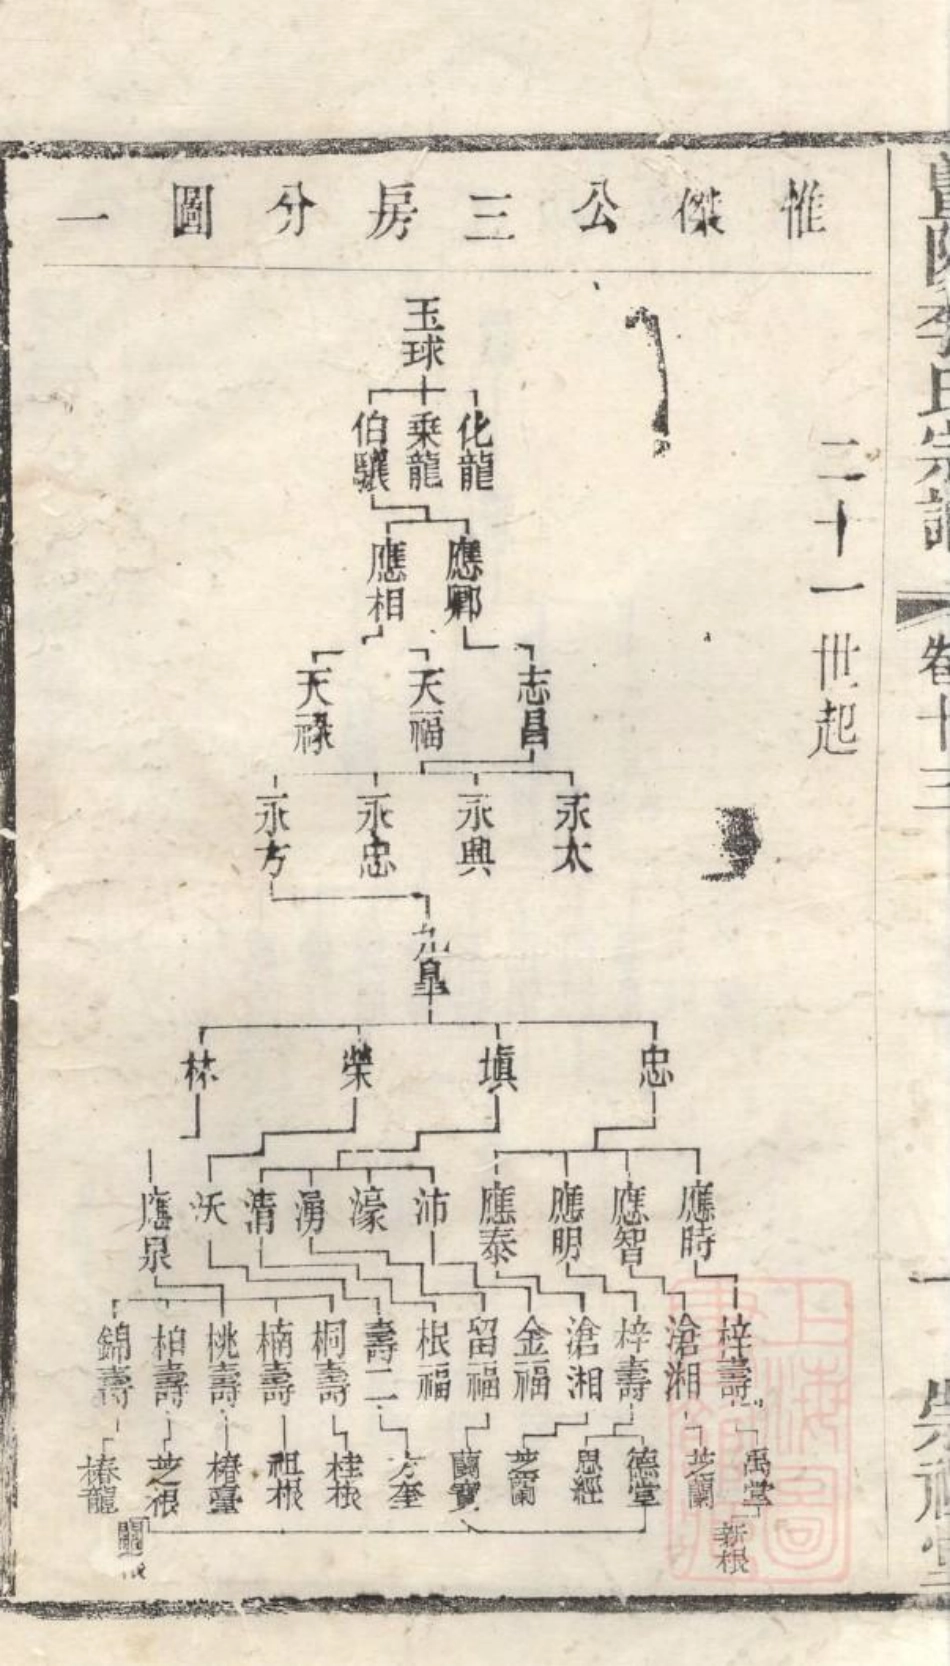 惟傑公三房分圖一
二十一世起
玉球
化龍 乘龍 伯驥
應卿 應相
志昌 天福 天祿
永太 永興 永忠 永方
九皐
忠 塡 榮 林
應時 應智 應明 應泰 沛 濠 湧 清 沃 應泉
梓壽 滄湘 梓壽 滄湘 金福 留福 根福 壽二 桐壽 楠壽 桃壽 柏壽 錦壽
禹堂 芝蘭 德堂 恩經 芝蘭 蘭寶 方奎 桂根 祖根 椿臺 芝根 椿龍
新根
暨陽李氏宗譜
卷十三
一
上海圖書館藏